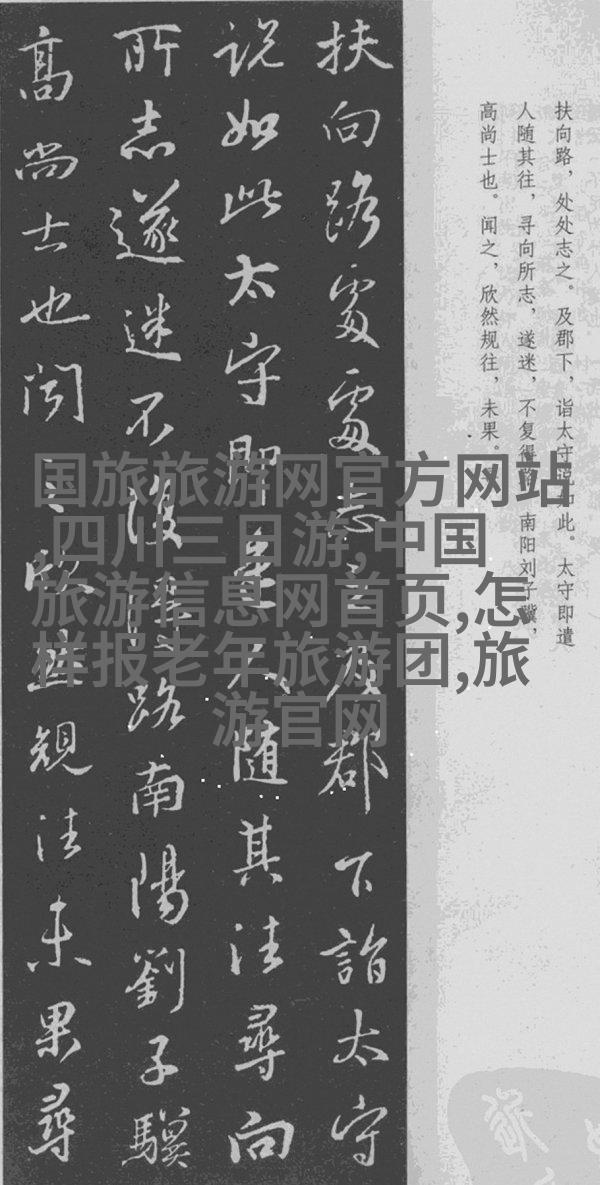 扶向路，处处志之。及郡下，诣太守说如此。太守即遣
人随其往，寻向所志，遂迷，不复得路。南阳刘子骥，
高尚士也。闻之，欣然规往，未果。
扶向路處處志之及郡下詣太守
说如此太守即遣人随其往尋向
所志遂迷不復得路南陽劉子驥
高尚士也闻之欣然規往未果尋
国旅旅游网官方网站
四川三日游,中国
旅游信息网首页,怎
样报老年旅游团,旅
游官网